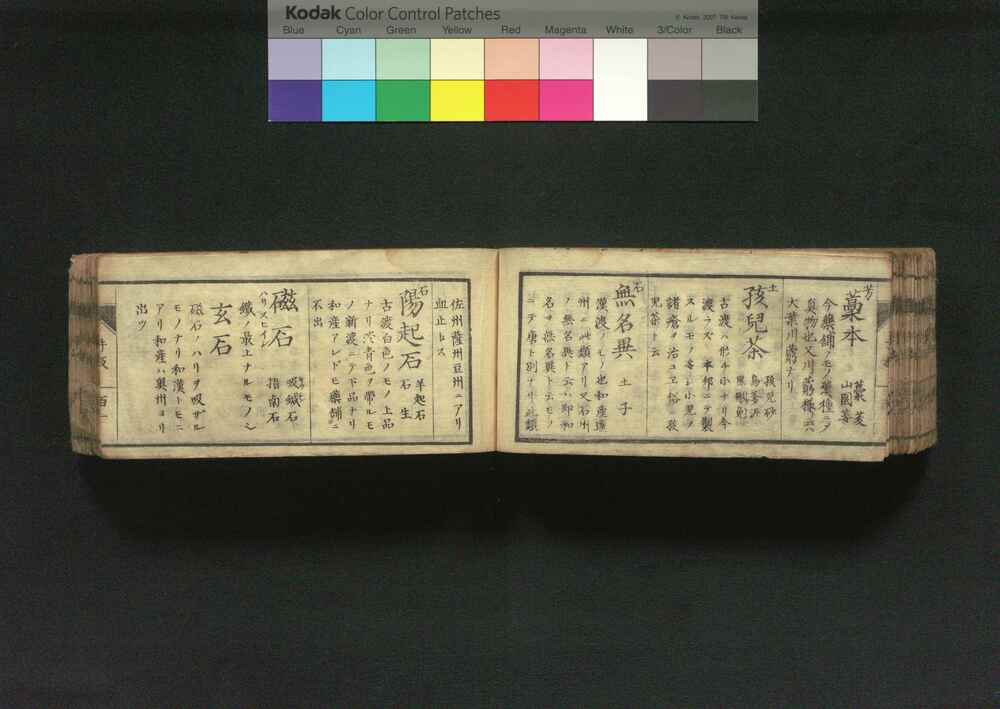 Kodak Color Control Patches
© Kodak, 2007 TM: Kodak
Blue Cyan Green Yellow Red Magenta White 3/Color Black
芳
藁本
山園荽
今藥鋪ノモノ
大葉川芎ナリ
土
孩兒茶
孩兒砂
烏爹泥
古渡ハ形チ小ナリ今
渡ラズ本邦ニテ製
スルモノ多シ小兒ノ
諸瘡ヲ治ユヱ俗ニ孩
兒茶ト云
石
無名異
土子
漢渡ノモノ也和産
州ニ此類アリ又石州
ノ無名異ト云ハ即和
名ヲ無名異ト云モノ
ニテ唐ト別ナリ此類
佐州薩州豆州ニアリ
血止トス
石
陽起石
羊起石
石生
古渡白色ノモノ上品
ナリ浅青色ヲ帶ルモ
ノ新渡ニテ下品ナリ
和産アレドモ藥鋪ニ
不出
磁石
吸鍼石
指南石
ハリスヒイシ
鐵ノ最上ナルモノヽ
玄石
磁石ノハリヲ吸ザル
モノナリ和漢トモニ
アリ和産ハ奥州ヨリ
出ツ